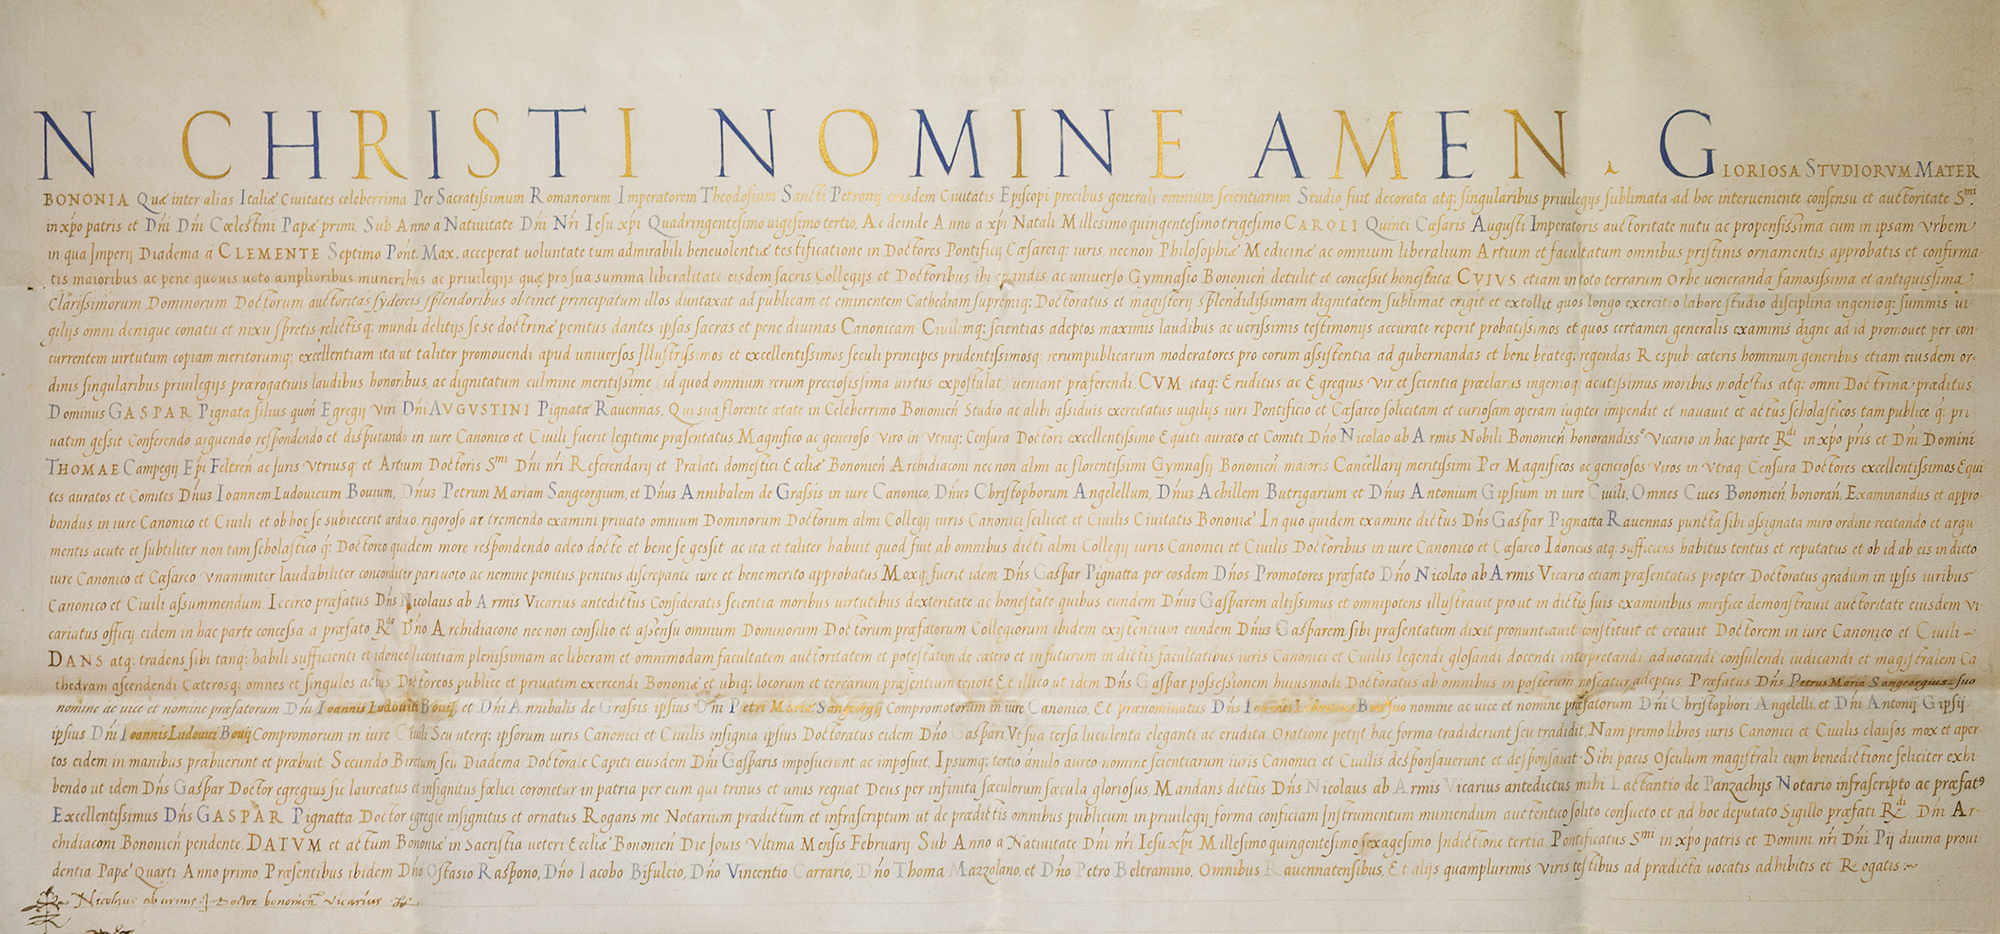 N CHRISTI NOMINE AMEN. GLORIOSA STVDIORVM MATER
BONONIA Quæ inter alias Italiæ Ciuitates celeberrima Per Sacratissimum Romanorum Imperatorem Theodosium Sancti Petronij eiusdem Ciuitatis Episcopi precibus generali omnium scientiarum Studio fuit decorata atq; singularibus priuilegijs sublimata ad hoc interueniente consensu et auctoritate Smi.
in xpo patris et Dñi Dñi Cœlestini Papæ primi, Sub Anno a Natiuitate Dñi Nři Iesu xpi Quadringentesimo uigesimo tertio, Ac deinde Anno a xpi Natali Millesimo quingentesimo trigesimo CAROLI Quinti Cæsaris Augusti Imperatoris auctoritate nutu ac propensissima cum in ipsam Vrbem
in qua Imperij Diadema á CLEMENTE Septimo Pont. Max. acceperat uoluntate tum admirabili beneuolentiæ testificatione in Doctores Pontificij Cæsareiq; iuris, necnon Philosophiæ Medicinæ ac omnium liberalium Artium et facultatum omnibus pristinis ornamentis approbatis et confirma-
tis maioribus ac pene quouis uoto amplioribus muneribus ac priuilegijs quæ pro sua summa liberalitate eisdem sacris Collegijs et Doctoribus ibi creandis, ac uniuerso Gymnasio Bononieñ detulit et concessit honestata CVIVS etiam in toto terrarum Orbe ueneranda famosissima et antiquissima
Clarissimorum Dominorum Doctorum auctoritas sydereis splendoribus obtinet principatum illos duntaxat ad publicam et eminentem Cathedram supremiq; Doctoratus et magisterij splendidissimam dignitatem sublimat erigit et extollit quos longo exercitio labore studio disciplina ingenioq; summis ui
gilijs omni denique conatu et nixu spretis relictisq; mundi delitijs se se doctrinæ penitus dantes ipsas sacras et pene diuinas Canonicam Ciuilemq; scientias adeptos maximis laudibus ac uerissimis testimonijs accurate reperit probatissimos et quos certamen generalis examinis digne ad id promouet per con
currentem uirtutum copiam meritorumq; excellentiam ita ut taliter promouendi apud uniuersos Illustrissimos et excellentissimos seculi principes prudentissimosq; rerumpublicarum moderatores pro eorum assistentia ad gubernandas et bene beateq; regendas Respub. cæteris hominum generibus etiam eiusdem or-
dinis singularibus priuilegijs prærogatiuis laudibus honoribus, ac dignitatum culmine meritissime (id quod omnium rerum preciosissima uirtus expostulat) ueniant præferendi. CVM itaq; Eruditus ac Egregius Vir et scientia præclarus ingenioq; acutissimus moribus modestus atq; omni Doctrina præditus
Dominus GASPAR Pignata filius quoñ Egregij Viri Dñi AVGVSTINI Pignatæ Rauennas, Qui sua florente ætate in Celeberrimo Bononieñ Studio ac alibi assiduis exercitatus uigilijs iuri Pontificio et Cæsareo solicitam et curiosam operam iugiter impendit et nauauit et actus scholasticos tam publice q̃ pri
uatim gessit Conferendo arguendo respondendo et disputando in iure Canonico et Ciuili, fuerit legitime præsentatus Magnifico ac generoso Viro in Vtraq; Censura Doctori excellentissimo Equiti aurato et Comiti Dño Nicolao ab Armis Nobili Bononieñ honorandisso Vicario in hac parte Rdi in xpo pris et Dñi Domini
THOMAE Campegij Epi Feltreñ ac Iuris Vtriusq; et Artium Doctoris Smi Dñi nři Referendarij et Prælati domestici Eccliæ Bononieñ Archidiaconi necnon almi ac florentissimi Gymnasij Bononieñ maioris Cancellarij meritissimi Per Magnificos ac generosos Viros in Vtraq; Censura Doctores excellentissimos Equi
tes auratos et Comites Dños Ioannem Ludouicum Bouium, Dños Petrum Mariam Sangeorgium, et Dños Annibalem de Grassis in iure Canonico, Dños Christophorum Angelellum, Dños Achillem Butrigarium et Dños Antonium Gipsium in iure Ciuili, Omnes Ciues Bononieñ honorañ, Examinandus et appro-
bandus in iure Canonico et Ciuili et ob hoc se subiecerit arduo rigoroso ac tremendo examini priuato omnium Dominorum Doctorum almi Collegij iuris Canonici scilicet et Ciuilis Ciuitatis Bononiæ In quo quidem examine dictus Dñs Gaspar Pignatta Rauennas puncta sibi assignata miro ordine recitando et argu
mentis acute et subtiliter non tam scholastico q̃ Doctoreo quidem more respondendo adeo docte et bene se gessit ac ita et taliter habuit quod fuit ab omnibus dicti almi Collegij iuris Canonici et Ciuilis Doctoribus in iure Canonico et Cæsareo Idoneus atq; sufficiens habitus tentus et reputatus et ob id ab eis in dicto
iure Canonico et Cæsareo Vnanimiter laudabiliter concorditer pari uoto ac nemine penitus penitus discrepante iure et benemerito approbatus Moxq; fuerit idem Dñs Gaspar Pignatta per eosdem Dños Promotores præfato Dño Nicolao ab Armis Vicario etiam præsentatus propter Doctoratus gradum in ipsis iuribus
Canonico et Ciuili assummendum. Iccirco præfatus Dñs Nicolaus ab Armis Vicarius antedictus Consideratis scientia moribus uirtutibus dexteritate ac honestate quibus eundem Dños Gasparem altissimus et omnipotens illustrauit prout in dictis suis examinibus mirifice demonstrauit auctoritate eiusdem Vi
cariatus officij eidem in hac parte concessa a præfato Rdo Dño Archidiacono necnon consilio et assensu omnium Dominorum Doctorum præfatorum Collegiorum ibidem existentium eundem Dños Gasparem sibi præsentatum dixit pronuntiauit constituit et creauit Doctorem in iure Canonico et Ciuili
DANS atq; tradens sibi tanq; habili sufficienti et idoneo licentiam plenissimam ac liberam et omnimodam facultatem auctoritatem et potestatem de cætero et in futurum in dictis facultatibus iuris Canonici et Ciuilis legendi glosandi docendi interpretandi aduocandi consulendi iudicandi et magistralem Ca
thedram ascendendi Cæterosq; omnes et singulos actus Doctoreos publice et priuatim exercendi Bononiæ et ubiq; locorum et terrarum præsentium tenore Et illico ut idem Dñs Gaspar possessionem huiusmodi Doctoratus ab omnibus in posterum noscatur adeptus. Præfatus Dñs Petrus Maria Sangeorgius suo
nomine ac uice et nomine præfatorum Dñi Ioannis Ludouici Bouij, et Dñi Annibalis de Grassis ipsius Dñi Petri Mariæ Sangeorgij Compromotorum in iure Canonico, Et prænominatus Dñs suo nomine ac uice et nomine præfatorum Dñi Christophori Angelelli et Dñi Antonij Gipsij.
ipsius Dñi Ioannis Ludouici Bouij Compromorum in iure Ciuili Seu uterq; ipsorum iuris Canonici et Ciuilis insignia ipsius Doctoratus eidem Dño Gaspari Vt sua tersa luculenta eleganti ac erudita Oratione petijt hac forma tradiderunt seu tradidit, Nam primo libros iuris Canonici et Ciuilis clausos mox et aper-
tos eidem in manibus præbuerunt et præbuit. Secundo Birettum seu Diadema Doctorale Capiti eiusdem Dñi Gasparis imposuerunt ac imposuit, Ipsumq; tertio ánulo aureo nomine scientiarum iuris Canonici et Ciuilis desponsauerunt et desponsauit. Sibi pacis Osculum magistrali cum benedictione feliciter exhi-
bendo ut idem Dñs Gaspar Doctor egregius sic laureatus et insignitus fœlici coronetur in patria per eum qui trinus et unus regnat Deus per infinita sæculorum sæcula gloriosus, Mandans dictus Dñs Nicolaus ab Armis Vicarius antedictus mihi Lactantio de Panzachijs Notario infrascripto ac præfato
Excellentissimus Dñs GASPAR Pignatta Doctor egregie insignitus et ornatus Rogans me Notarium prædictum et infrascriptum ut de prædictis omnibus publicum in priuilegij forma conficiam Instrumentum muniendum auctentico solito consueto et ad hoc deputato Sigillo præfati Rdi Dñi Ar-
chidiaconi Bononieñ pendente. DATVM et actum Bononiæ in Sacristia ueteri Eccliæ Bononieñ Die Iouis Vltima Mensis Februarij Sub Anno a Natiuitate Dñi nři Iesu xpi Millesimo quingentesimo sexagesimo Indictione tertia Pontificatus Smi in xpo patris et Domini nři Dñi Pij diuina proui
dentia Papæ Quarti Anno primo, Præsentibus ibidem Dño Ostasio Raspono, Dño Iacobo Bifulcio, Dño Vincentio Carrario, Dño Thoma Mazzolano, et Dño Petro Beltramino, Omnibus Rauennatensibus, Et alijs quamplurimis uiris testibus ad prædicta uocatis adhibitis et Rogatis.
Nicolaus ab armis Doctor bononieñ Vicarius